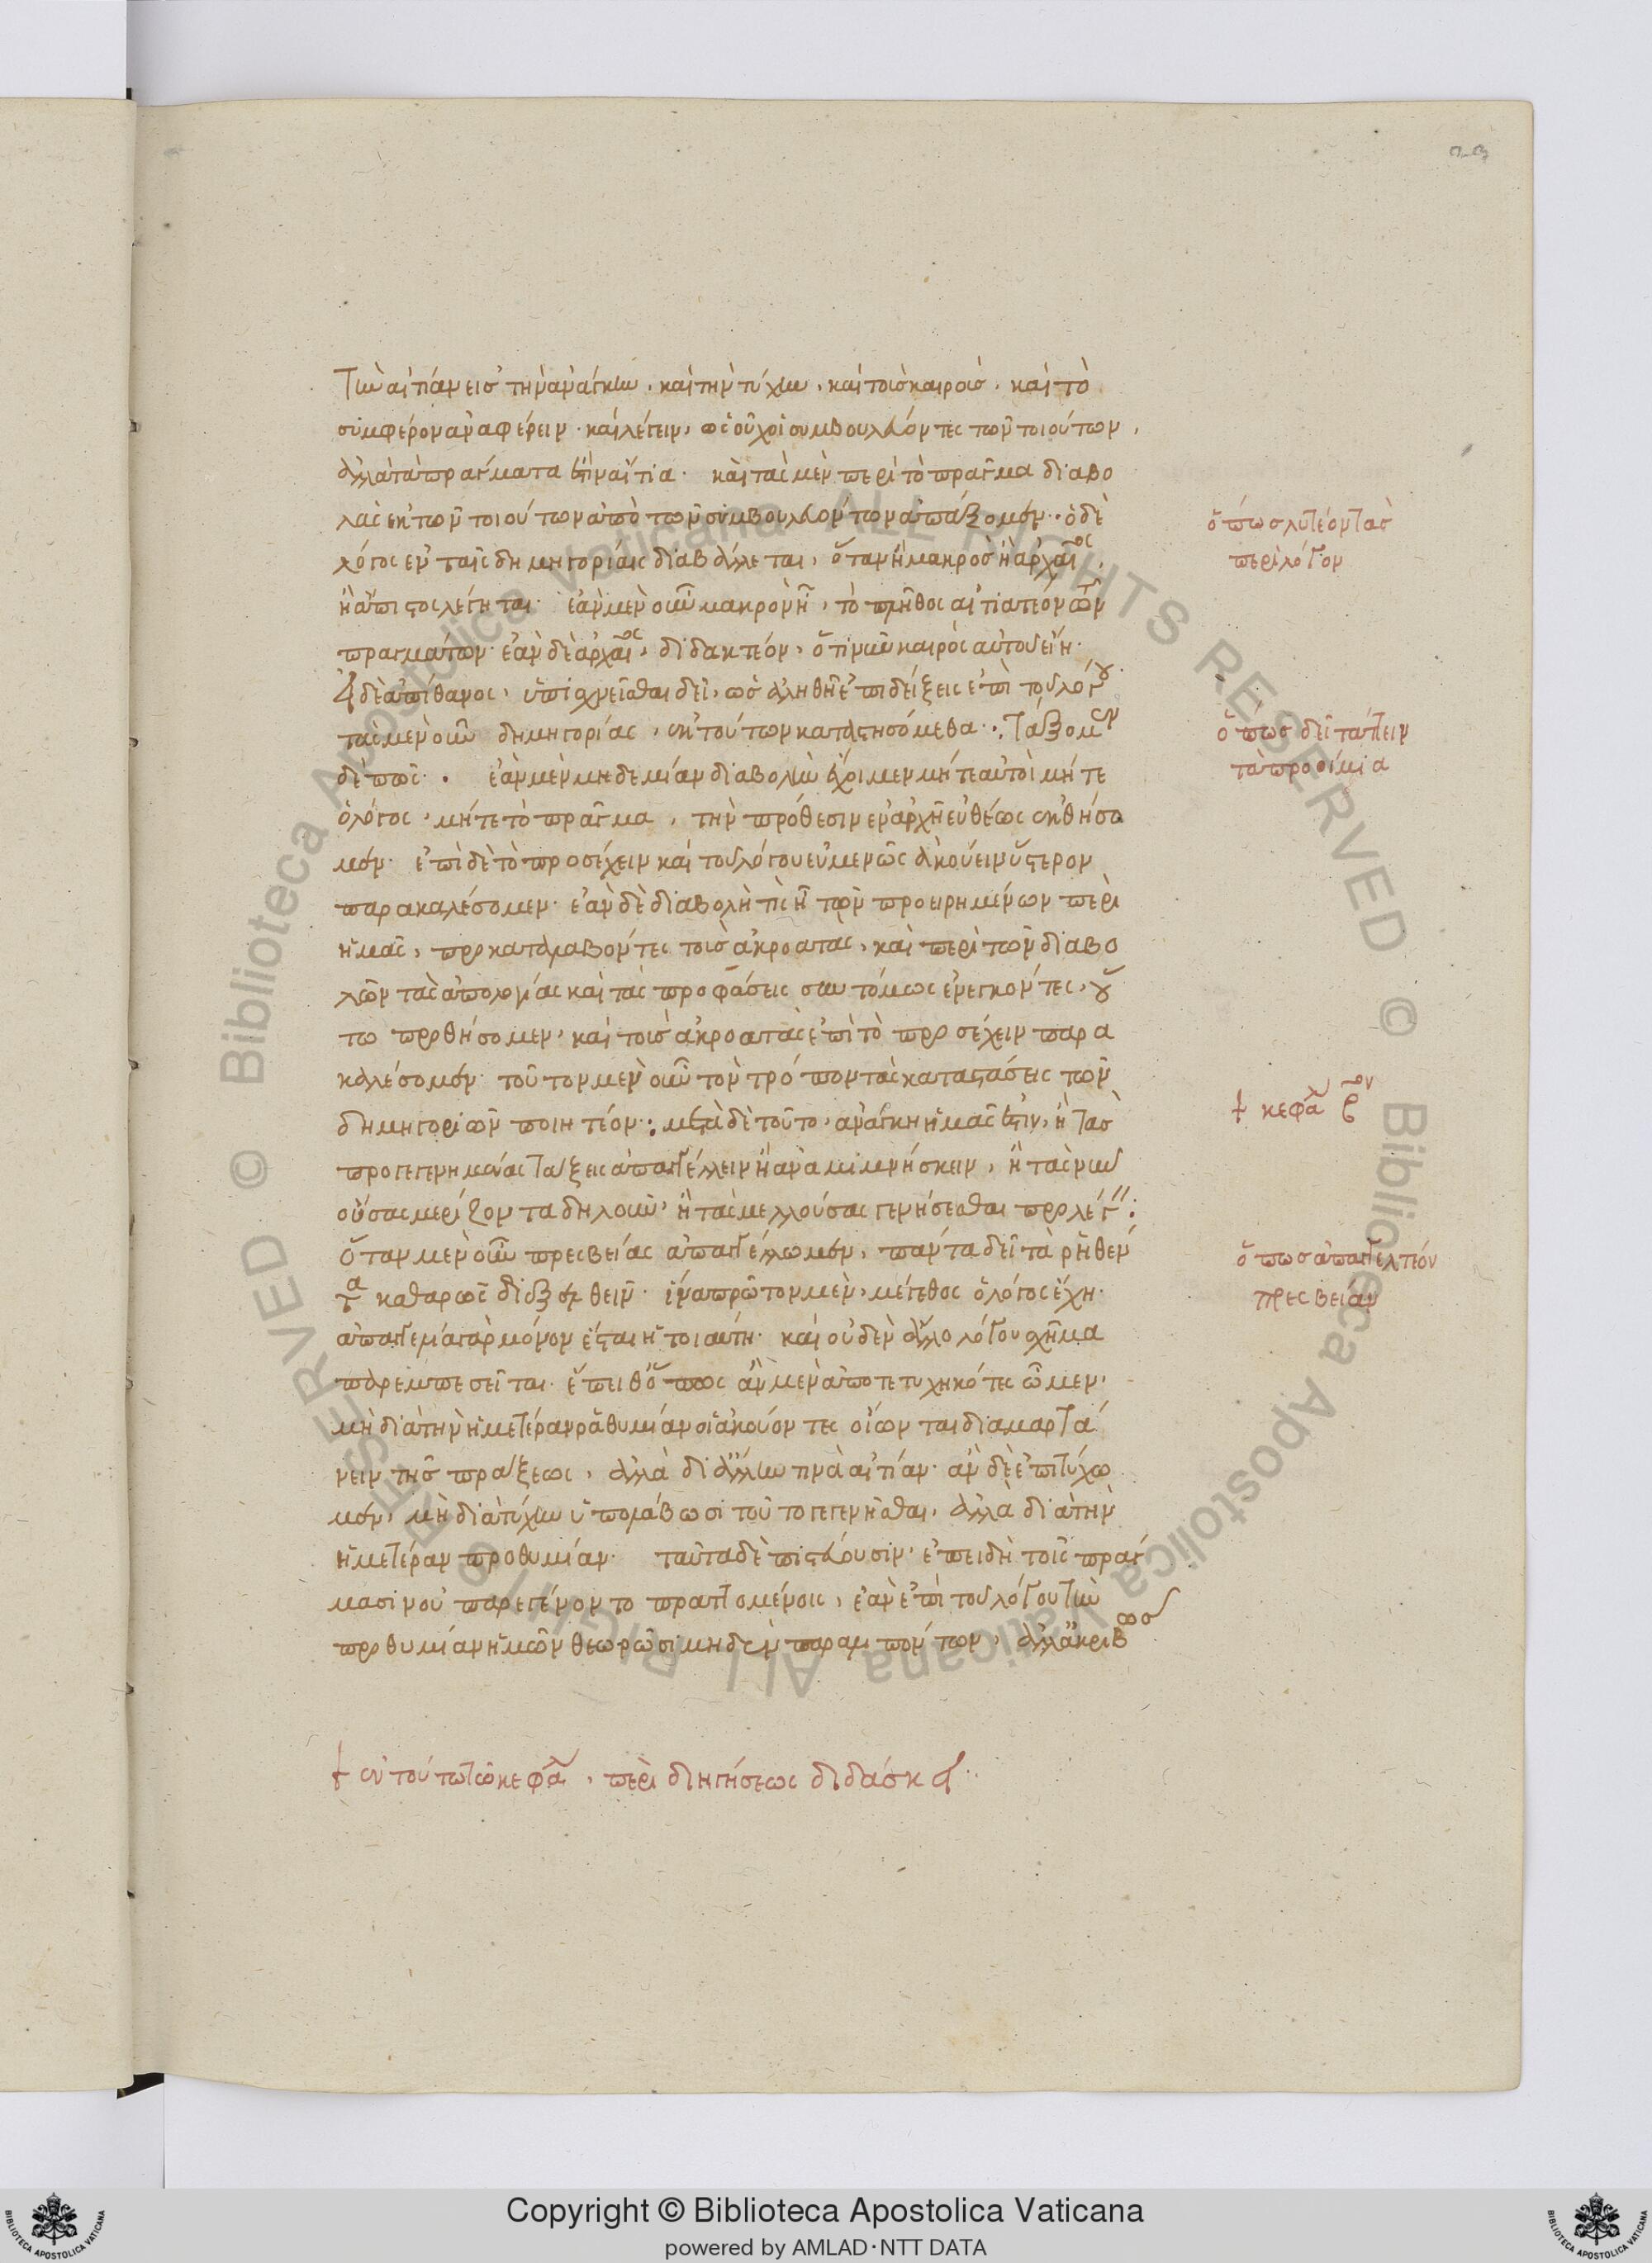 τὴν αἰτίαν εἰς τὴν ἀνάγκην, καὶ τὴν τύχην, καὶ τοὺς καιροὺς, καὶ τὸ
συμφέρον ἀναφέρειν· καὶ λέγειν, ὡς οὐχ οἱ συμβουλεύοντες τῶν τοιούτων,
ἀλλὰ τὰ πράγματα ἐστὶν αἴτια· καὶ τὰς μὲν περὶ τὸ πρᾶγμα διαβο
λὰς ἐκ τῶν τοιούτων ἀπὸ τῶν συμβουλευόντων ἀπάξομεν· ὁ δὲ
λόγος ἐν ταῖς δημηγορίαις διαβάλλεται, ὅταν ἢ μακρὸς ἢ ἀρχαῖος,
ἢ ἄπιστος λέγηται· ἐὰν μὲν οὖν μακρὸν ᾖ, τὸ πλῆθος αἰτιατέον τῶν
πραγμάτων· ἐὰν δὲ ἀρχαῖος, διδακτέον, ὅτι νῦν καιρὸς αὐτοῦ εἴη·
εἰ δὲ ἀπίθανος, ὑπισχνεῖσθαι δεῖ, ὡς ἀληθῆ ἐπιδείξεις ἐπὶ τοῦ λόγου·
τὰς μὲν οὖν δημηγορίας, ἐκ τούτων καταστησόμεθα·: Τάξομεν
δὲ πῶς· ἐὰν μὲν μηδεμίαν διαβολὴν ἔχοιμεν μήτε αὐτοὶ μήτε
ὁ λόγος, μήτε τὸ πρᾶγμα, τὴν πρόθεσιν ἐν ἀρχῇ εὐθέως ἐκθήσο
μεν· ἐπὶ δὲ τὸ προσέχειν καὶ τοῦ λόγου εὐμενῶς ἀκούειν ὕστερον
παρακαλέσομεν· ἐὰν δὲ διαβολή τις ᾖ τῶν προειρημένων περὶ
ἡμᾶς, προκαταλαβόντες τοὺς ἀκροατὰς, καὶ περὶ τῶν διαβο
λῶν τὰς ἀπολογίας καὶ τὰς προφάσεις συντόμως ἐνεγκόντες, οὕ
τω προθήσομεν, καὶ τοὺς ἀκροατὰς ἐπὶ τὸ προσέχειν παρα
καλέσομεν· τοῦτον μὲν οὖν τὸν τρόπον τὰς καταστάσεις τῶν
δημηγοριῶν ποιητέον·: μετὰ δὲ τοῦτο, ἀνάγκη ἡμᾶς ἐστιν, ἢ τὰς
προγεγενημένας πράξεις ἀπαγγέλλειν ἢ ἀναμιμνήσκειν, ἢ τὰς νῦν
οὔσας μερίζοντα δηλοῦν, ἢ τὰς μελλούσας γενήσεσθαι προλέγειν:
Ὅταν μὲν οὖν πρεσβείας ἀπαγγέλλωμεν, πάντα δεῖ τὰ ῥηθέν
τα καθαρῶς διεξελθεῖν· ἵνα πρῶτον μὲν, μέγεθος ὁ λόγος ἔχῃ·
ἀπαγγελία γὰρ μόνον ἔσται ἡ τοιαύτη· καὶ οὐδὲν ἄλλο λόγου σχῆμα
παρεμπεσεῖται· ἔπειθ' ὅπως ἂν μὲν ἀποτετυχηκότες ὦμεν,
μὴ διὰ τὴν ἡμετέραν ῥαθυμίαν οἱ ἀκούοντες οἴωνται διαμαρτά
νειν τῆς πράξεως, ἀλλὰ δι' ἄλλην τινὰ αἰτίαν· ἂν δὲ ἐπιτύχω
μεν, μὴ διὰ τύχην ὑπολάβωσι τοῦτο γεγενῆσθαι, ἀλλὰ διὰ τὴν
ἡμετέραν προθυμίαν· ταῦτα δὲ πιστεύουσιν, ἐπειδὴ τοῖς πράγ
μασιν οὐ παρεγένοντο πραττομένοις, ἐὰν ἐπὶ τοῦ λόγου τὴν
προθυμίαν ἡμῶν θεωρῶσι μηδὲν παραλιπόντων, ἀλλ' ἀκριβῶς
ὅπως λυτέον τὰς
περὶ λόγον
ὅπως δεῖ τάττειν
τὰ προοίμια
κεφάλ
ὅπως ἀπαγγελτέον
πρεσβείαν
ἐν τούτῳ τῷ κεφαλ, περὶ διηγήσεως διδάσκει·